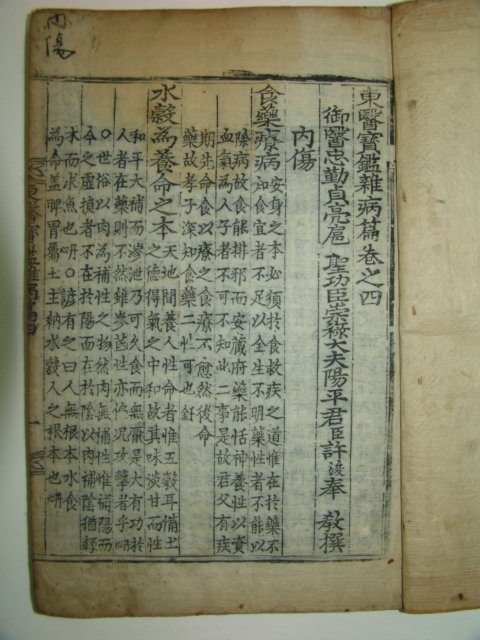 内傷
東醫寶鑑雜病篇卷之四
御醫忠勤貞亮扈 聖功臣崇祿大夫陽平君臣許浚奉 敎撰
內傷
食藥療病
安身之本必須於食救疾之道惟在於藥不
知食宜者不足以全生不明藥性者不能以
除病故食能排邪而安藏府藥能恬神養性以資
血氣爲人子者不可不知此二事是故君父有疾
期先命食以療之食療不愈然後命
藥故孝子深知食藥二性可也
水穀爲養命之本
天地間養人性命者惟五穀耳備土
之德得氣之中和故其味淡甘而性
和平大補而滲泄乃可久食而無厭是大有功於
人者在藥則不然雖參芪性亦偏況攻擊者乎
○世俗以肉爲補性之物然肉無補性惟補陽而
今之虛損者不在於陽而在於陰以肉補陰猶緣
木而求魚也○諺有之曰人無根本水食
爲命蓋脾胃屬土主納水穀人之根本也